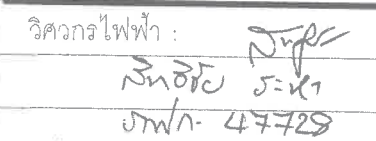 วิศวกรไฟฟ้า :
สิทธิชัย ระหา
ภฟก. 47728